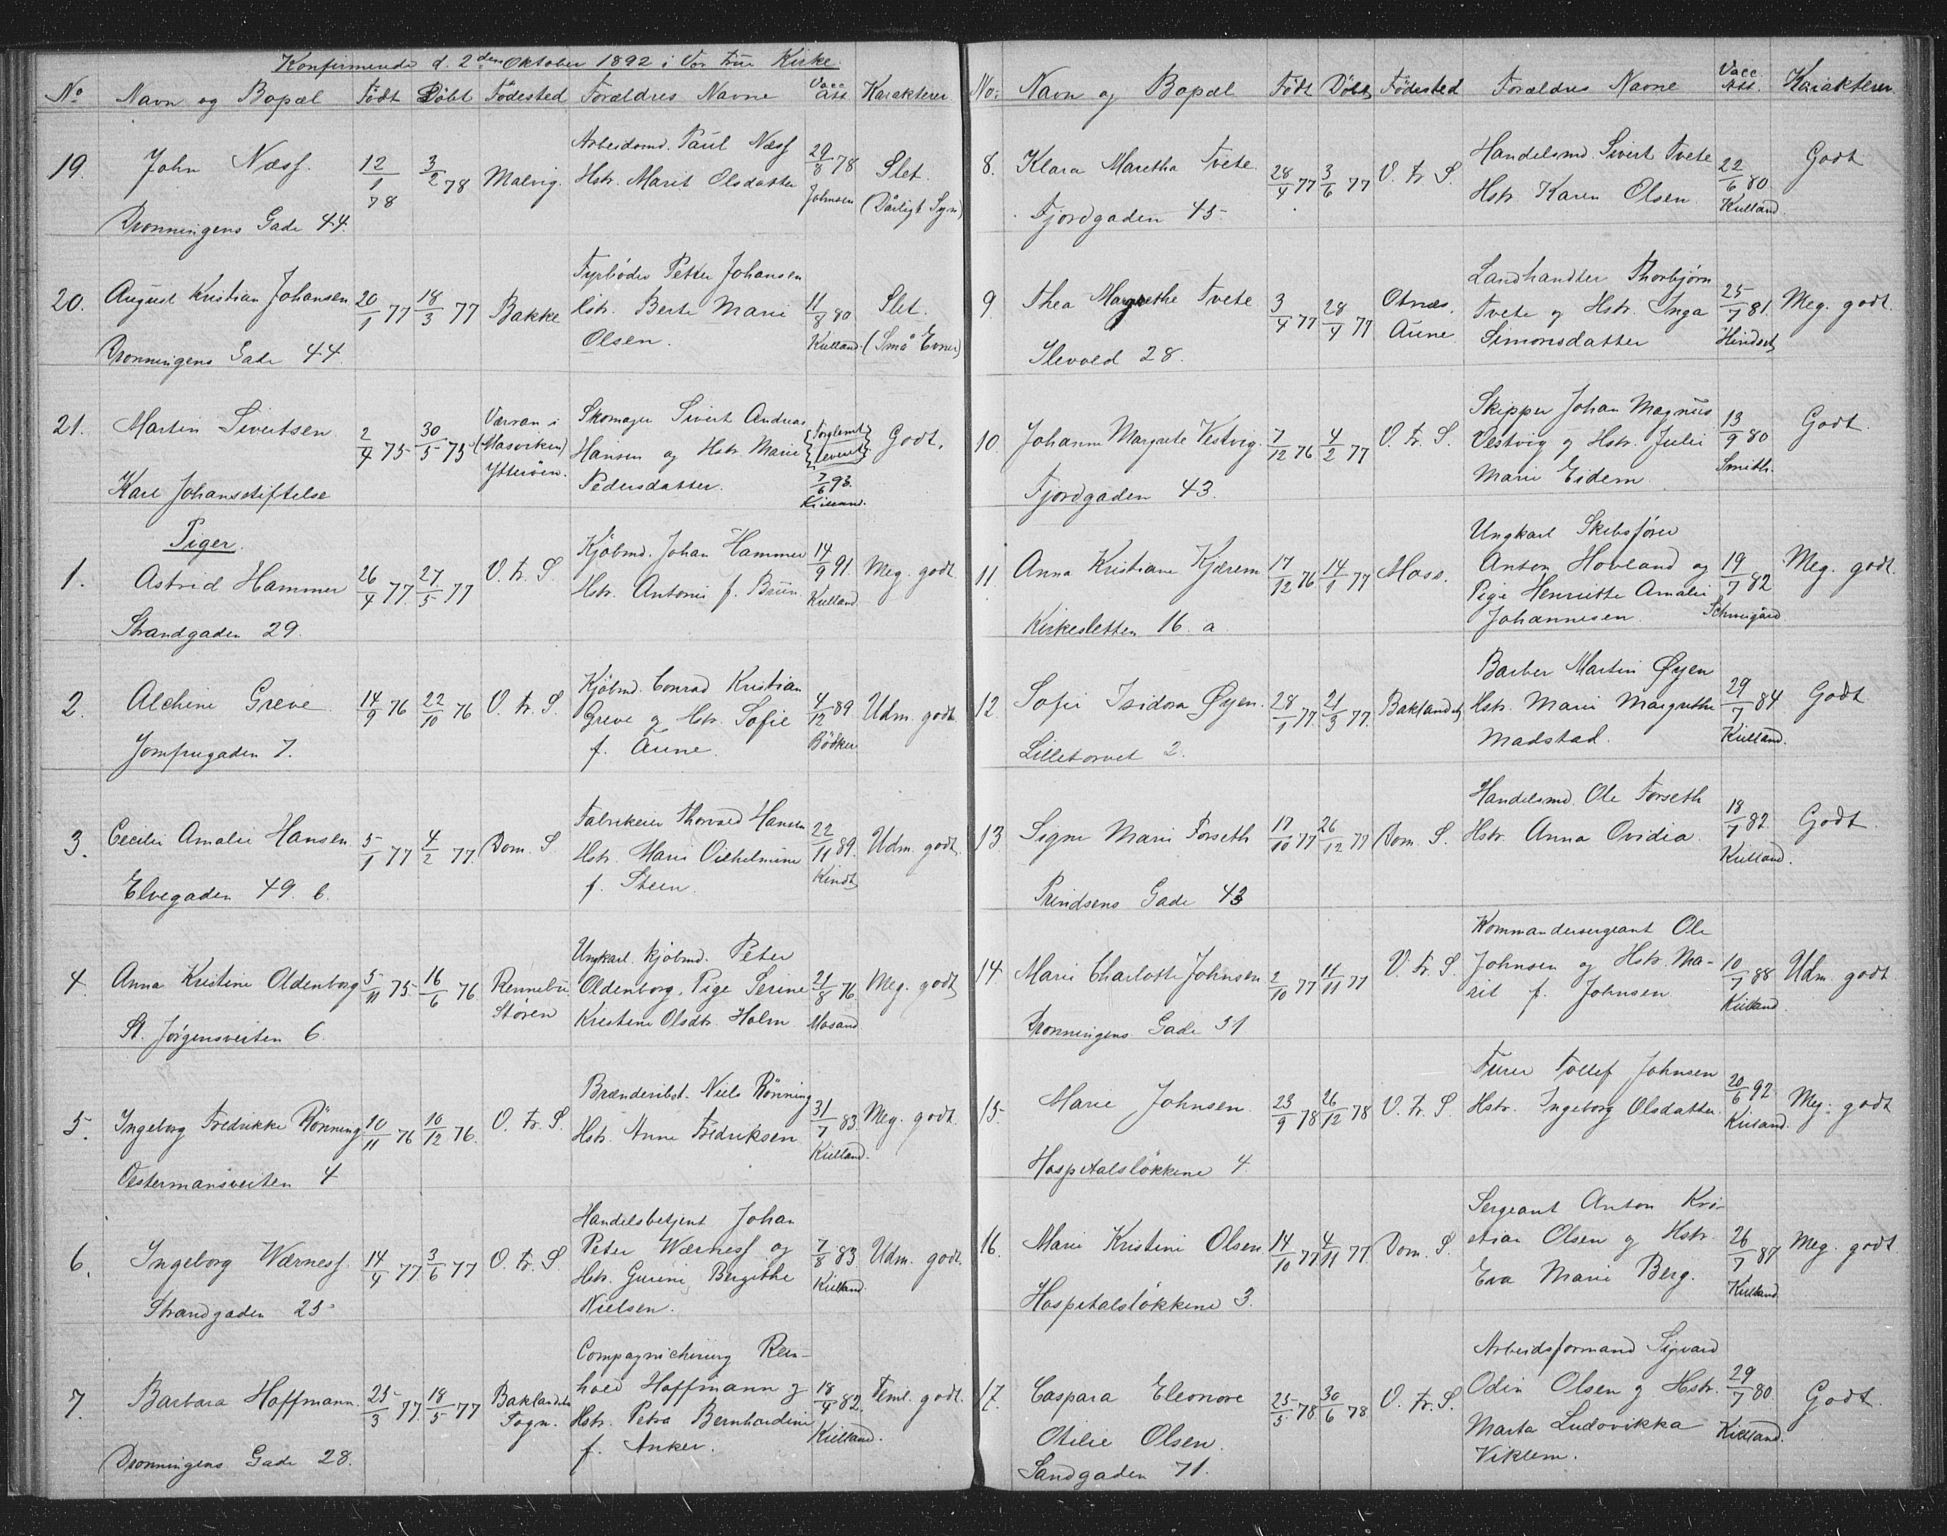 Konfirmerede d. 2den Oktober 1892 i Vor Frue Kirke.
No Navn og Bopæl Født Døbt Fødested Forældres Navne Vacc. Att. Karakterer
19. John Næss. 12/1 78 3/2 78 Malvig. Arbeidsmd. Paul Næss
Hstr. Marit Olsdatter 29/8 78 Johnsen Slet. (Dårligt Syn)
Dronningens Gade 44.
20. August Kristian Johansen 20/1 77 18/3 77 Bakke Fyrbøder Petter Johansen
Hstr. Berte Marie
Olsen. 11/8 80 Kielland Slet. (Små Evner)
Dronningens Gade 44.
21. Martin Sivertsen 2/4 75 30/5 75 Værran i
(Mosviken)
Ytterøen. Skomager Sivert Andreas
Hansen og Hstr. Marie
Pedersdatter. Forglemt leveret 7/6 93. Kielland. Godt.
Karl Johansstiftelse
Piger.
1. Astrid Hammer 26/4 77. 27/5 77 V. Fr. S Kjøbmd. Johan Hammer
Hstr. Antonie f. Bruun. 14/9 91. Kielland Meg. godt
Strandgaden 29.
2. Alchine Greve 14/9 76 22/10 76 V. Fr. S. Kjøbmd. Conrad Kristian
Greve og Hstr. Sofie
f. Aune. 4/12 89 Bödker Udm. godt
Jomfrugaden 7.
3. Cecilie Amalie Hansen 5/1 77 4/2 77. Dom. S Fabrikeier Thorvald Hansen
Hstr. Marie Vilhelmine
f. Steen. 22/11 89. Kindt Udm. godt.
Elvegaden 49. b.
4. Anna Kristine Oldenborg 5/11 75 16/6 76 Rennebu
Støren Ungkarl. Kjøbmd. Peter
Oldenborg, Pige Serine
Kristine Olsdtr. Holm 21/8 76 Mosand Meg. godt
St. Jørgensveiten 6.
5. Ingeborg Fredrikke Rönning 10/11 76 10/12 76. V. Fr. S. Brænderibst. Niels Rönning
Hstr. Anne Fredriksen 31/7 83 Kielland. Meg. godt.
Østermansveiten 4
6. Ingeborg Wærness. 14/4 77 3/6 77 V. Fr. S Handelsbetjent Johan
Peter Wærness og
Hstr. Gurine Bergithe
Nielsen. 7/8 83. Kielland Udm. godt.
Strandgaden 25
7. Barbara Hoffmann. 25/3 77. 18/5 77 Baklandets
Sogn. Compagnichirurg Rein-
hold Hoffmann og
Hstr. Petra Bernhardine
f. Anker. 18/4 82. Kielland. Teml. godt.
Dronningens Gade 28.
No. Navn og Bopæl Født Døbt Fødested Forældres Navne Vacc. Att. Karakterer
8. Klara Maretha Tvete. 28/4 77 3/6 77 V. Fr. S. Handelsmd. Sivert Tvete
Hstr. Karen Olsen. 22/6 80. Kielland. Godt
Fjordgaden 45
9 Thea Margrethe Tvete 3/4 77 28/4 77 Otnæs.
Aune. Landhandler Thorbjørn
Tvete og Hstr. Inga
Simonsdatter 25/7 81. Meg. godt.
Ilevold 28.
10. Johanne Margrete Vestvig. 7/12 76 4/2 77 V. Fr. S. Skipper Johan Magnus
Vestvig og Hstr. Julie
Marie Eidem. 13/9 80 Smith. Godt.
Fjordgaden 43.
11. Anna Kristiane Kjærem 17/12 76 14/1 77 Moss. Ungkarl Skibsfører
Anton Hovland og
Pige Henriette Amalie
Johannesen. 19/7 82 Schweigård Meg. godt.
Kirkesletten 16. a
12 Sofie Isidora Øyen. 28/1 77. 21/3 77. Baklandet Barber Martin Øyen
Hstr. Marie Margrethe
Madstad. 29/7 84 Kielland. Godt
Lilletorvet 2.
13 Signe Marie Forseth 17/10 77 26/12 77 Dom. S. Handelsmd. Ole Forseth
Hstr. Anna Ovidia. 18/7 82. Kielland. Godt.
Prindsens Gade 43
14. Marie Charlotte Johnsen 2/10 77 11/11 77 V. Fr. S. Kommandersergeant Ole
Johnsen og Hstr. Ma-
rit f. Johnsen 10/7 88 Kielland. Udm. godt
Dronningens Gade 31
15. Marie Johnsen. 23/9 78 26/12 78 V. Fr. S. Furer Tollef Johnsen
Hstr. Ingeborg Olsdatter 20/6 92. Kielland. Meg. godt
Hospitalsløkkene 4.
16. Marie Kristine Olsen 14/10 77 4/11 77. Dom. S. Sergeant Anton Kri-
stian Olsen og Hstr.
Eva Marie Berg. 26/7 87 Kielland Meg. godt
Hospitalsløkkene 3.
17. Caspara Eleonore
Otilie Olsen. 25/5 78 30/6 78 V. Fr. S Arbeidsformand Sigvard
Odin Olsen og Hstr.
Marta Ludovikka
Viklem. 29/7 80 Kielland. Godt.
Sandgaden 71.